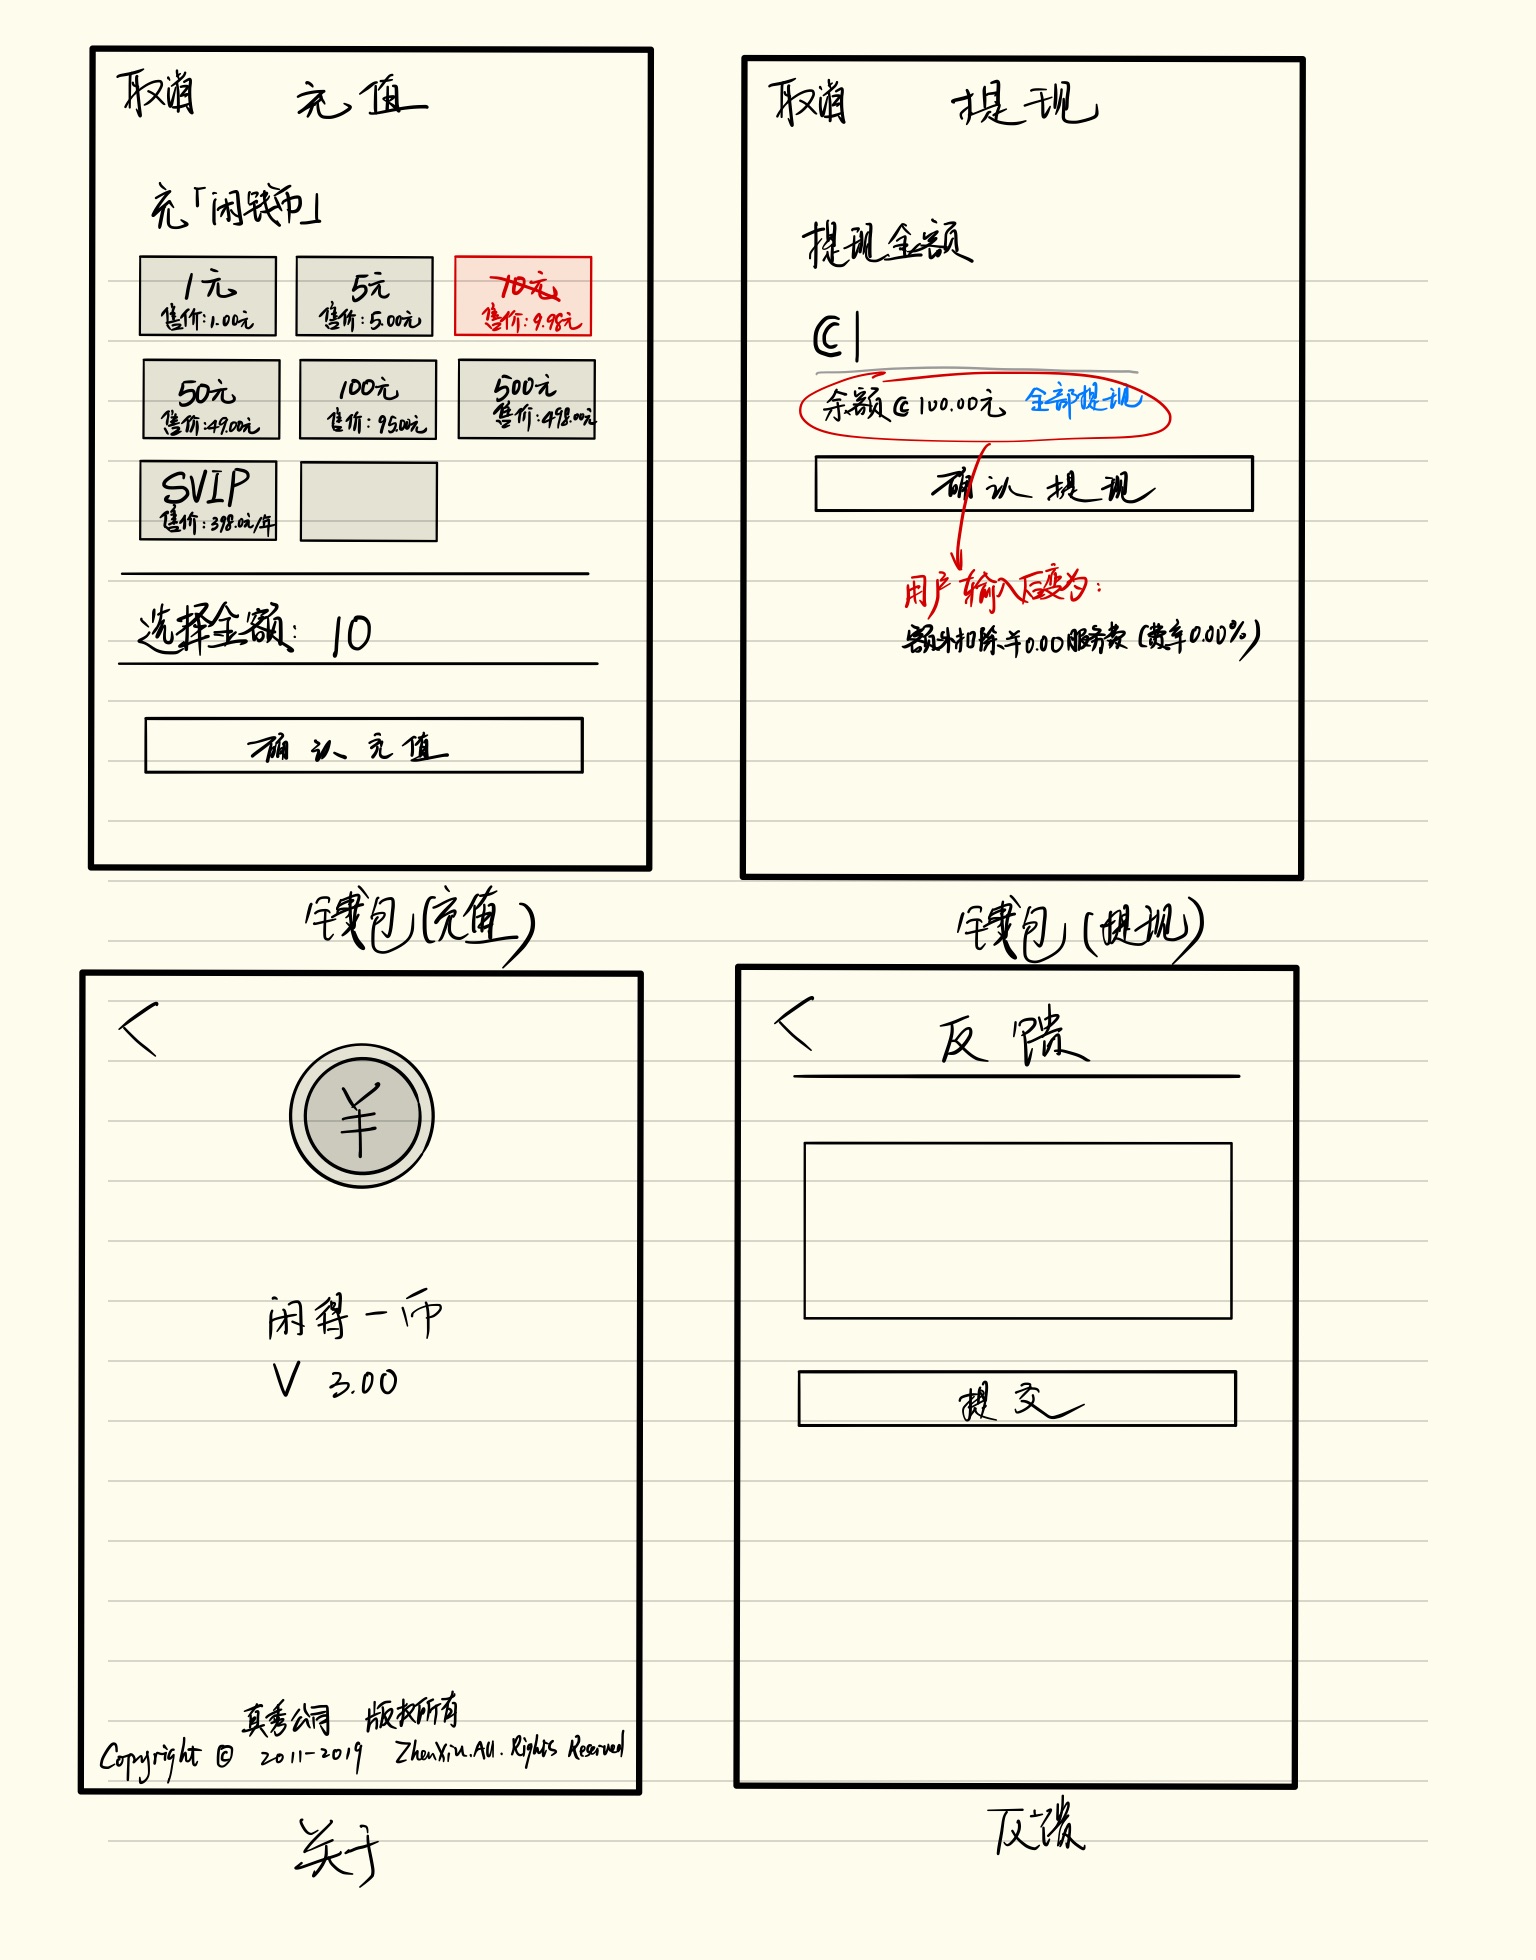 取消 充值
充「闲钱币」
1元 5元 10元
售价:1.00元 售价:5.00元 售价:9.98元
50元 100元 500元
售价:49.00元 售价:95.00元 售价:498.00元
SVIP
售价:398.0元/年
选择金额: 10
确认充值
钱包(充值)
取消 提现
提现金额
©|
余额©100.00元 全部提现
确认提现
用户输入后变为:
额外扣除¥0.00服务费(费率0.00%)
钱包(提现)
<
¥
闲得一币
V 3.00
真秀公司 版权所有
Copyright © 2011-2019 ZhenXiu.All.Rights Reserved
关于
< 反馈
提交
反馈